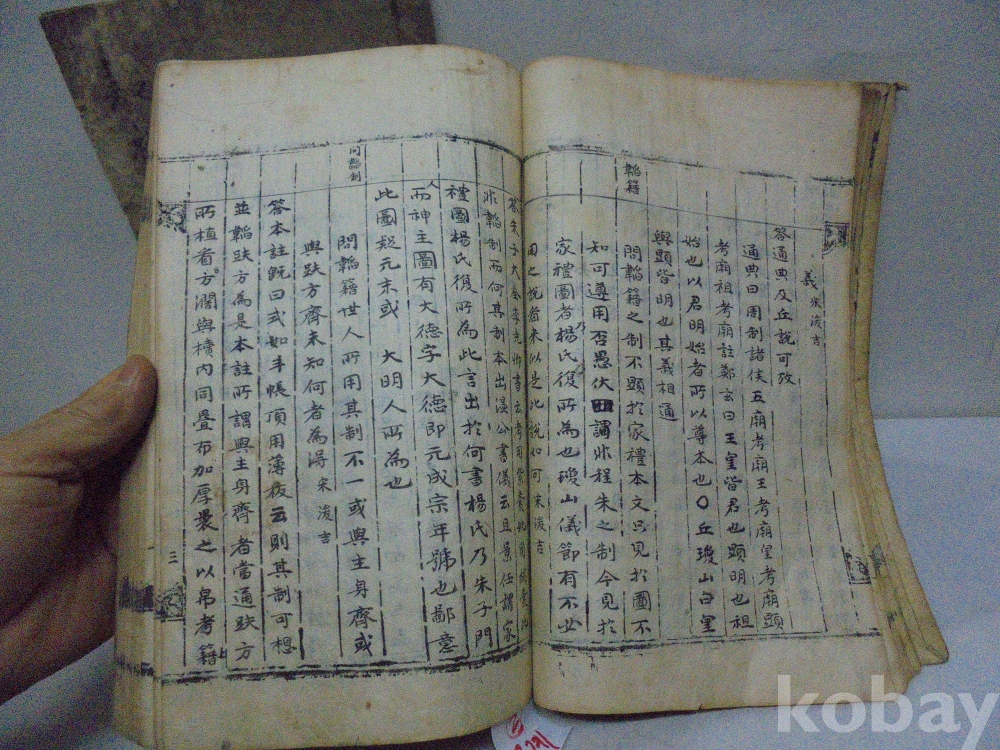 義 宋浚吉
答通典及丘說可攷
通典曰周制諸侯五廟考廟王考廟皇考廟顯
考廟祖考廟註鄭玄曰王皇皆君也顯明也祖
始也以君明始者所以尊本也○丘瓊山曰皇
與顯皆明也其義相通
韜籍
問韜籍之制不顯於家禮本文只見於圖不
知可遵用否愚伏謂非程朱之制今見於
家禮圖者楊氏復所為也瓊山儀節有不必
用之說者未似是此說如何宋浚吉
答朱子大全
非韜制而何其制本出溫公書儀云且景任謂家
禮圖楊氏復所為此言出於何書楊氏乃朱子門
人而神主圖有大德字大德即元成宗年號也鄙意
此圖疑元末或 大明人所為也
問韜制
問韜籍世人所用其制不一或與主身齊或
與趺方齊未知何者為得 宋浚吉
答本註旣曰式如斗帳頂用薄板云則其制可想
並韜趺方為是本註所謂與主身齊者當通趺方
所植看方濶與櫝內同疊布加厚裹之以帛考籍
三
kobay